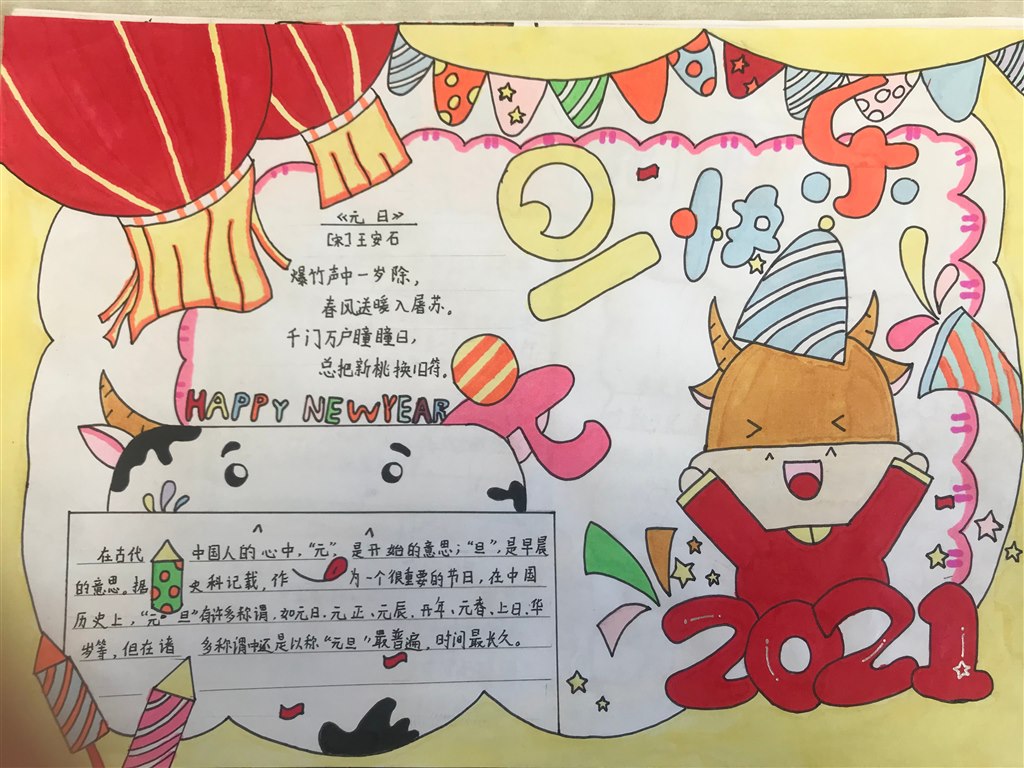 元旦快乐
《元 日》
[宋]王安石
爆竹声中一岁除,
春风送暖入屠苏。
千门万户瞳瞳日,
总把新桃换旧符。
HAPPY NEWYEAR
在古代 中国人的心中,“元”,是开始的意思;“旦”,是早晨
的意思。据 史料记载,作 为一个很重要的节日,在中国
历史上,“元 旦”有许多称谓,如元日、元正、元辰、开年、元春、上日、华
岁等,但在诸 多称谓中还是以称“元旦”最普遍,时间最长久。
2021